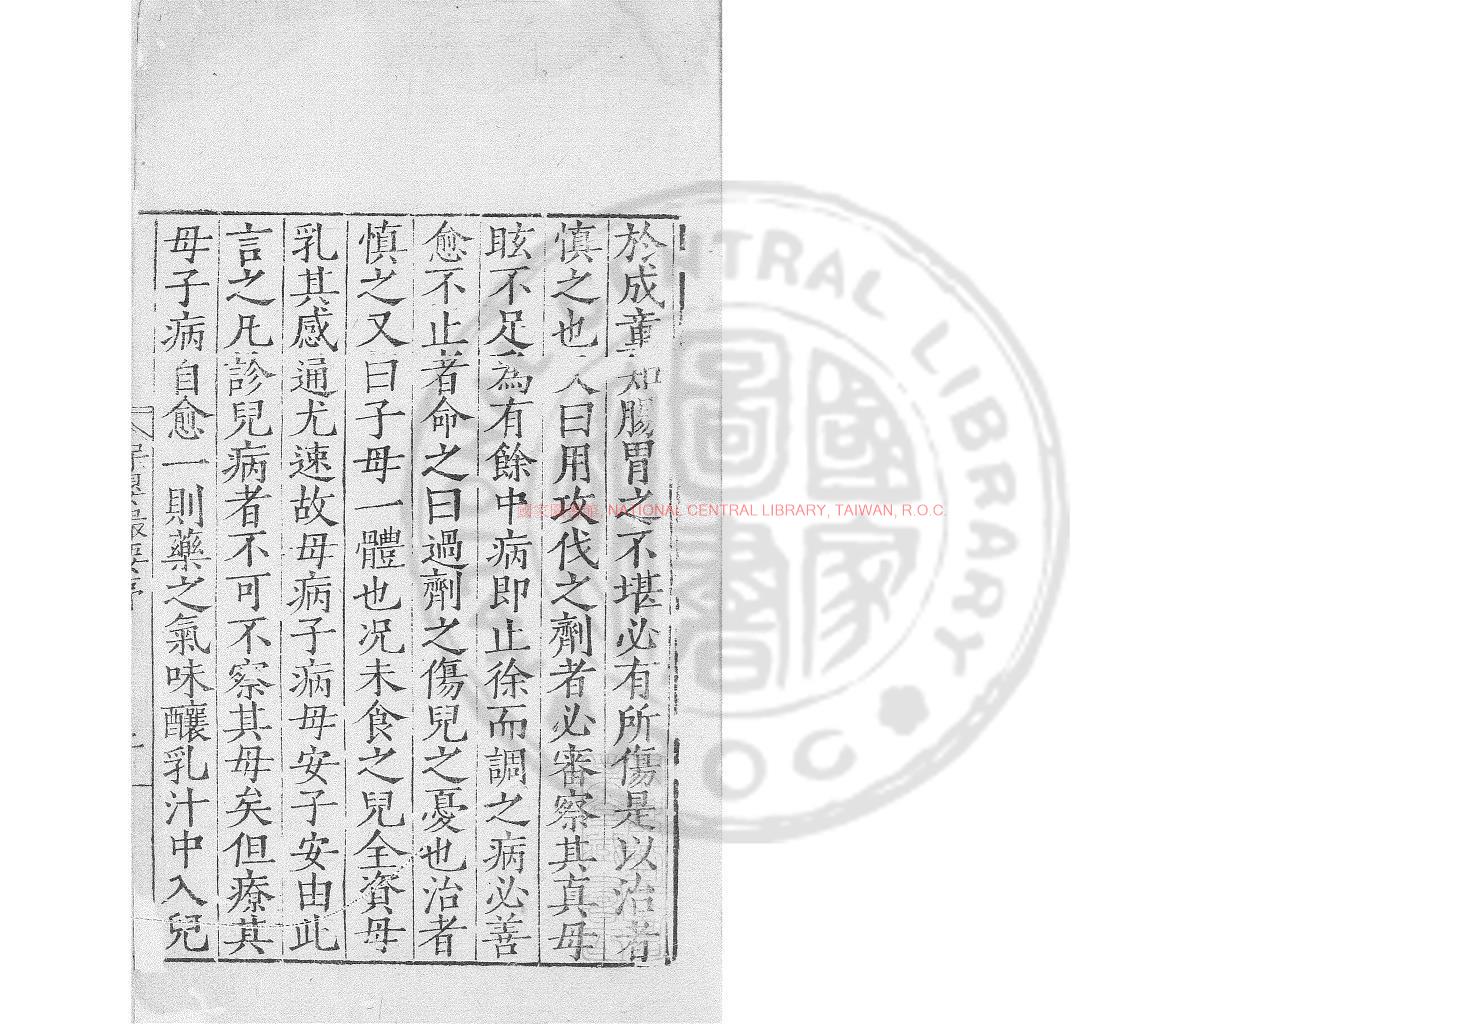 於成童知腸胃之不堪必有所傷是以治者
慎之也又曰用攻伐之劑者必審察其真毋
眩不足為有餘中病即止徐而調之病必善
愈不止者命之曰過劑之傷兒之憂也治者
慎之又曰子母一體也况未食之兒全資母
乳其感通尤速故母病子病母安子安由此
言之凡診兒病者不可不察其母矣但療其
母子病自愈一則藥之氣味釀乳汁中入兒
國家圖書館 NATIONAL CENTRAL LIBRARY, TAIWAN, R.O.C
CENTRAL LIBRARY
國家圖書